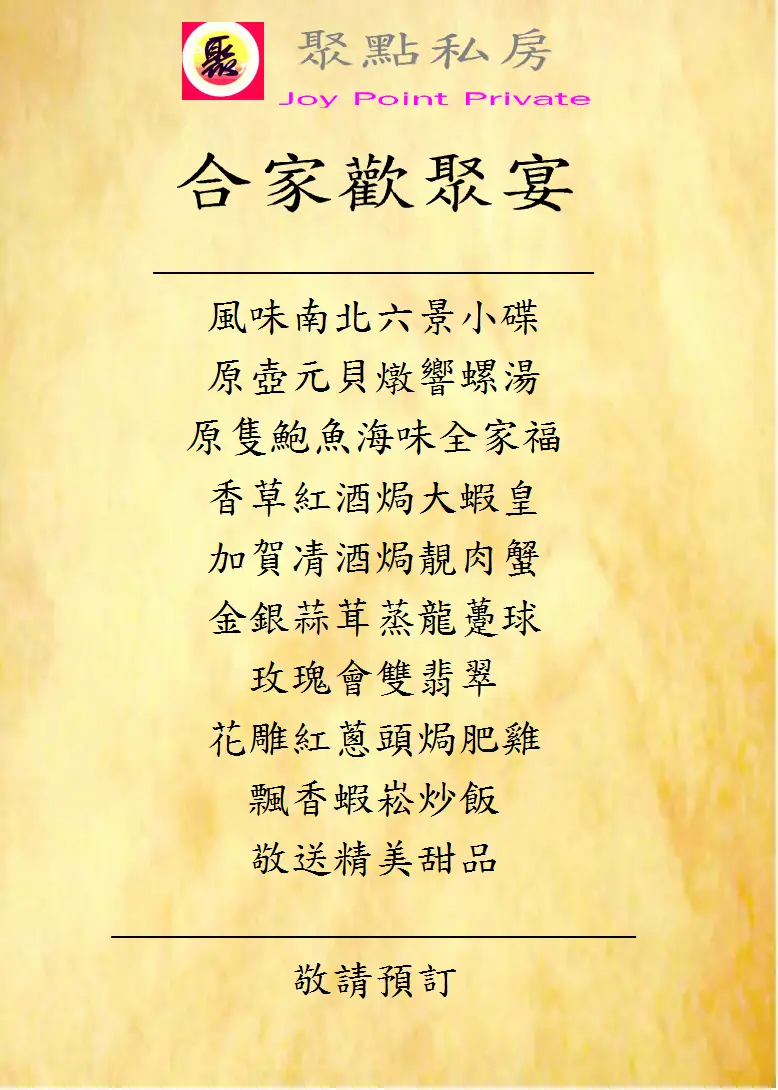 聚
聚點私房
Joy Point Private
合家歡聚宴
風味南北六景小碟
原壺元貝燉響螺湯
原隻鮑魚海味全家福
香草紅酒焗大蝦皇
加賀清酒焗靚肉蟹
金銀蒜茸蒸龍躉球
玫瑰會雙翡翠
花雕紅蔥頭焗肥雞
飄香蝦崧炒飯
敬送精美甜品
敬請預訂